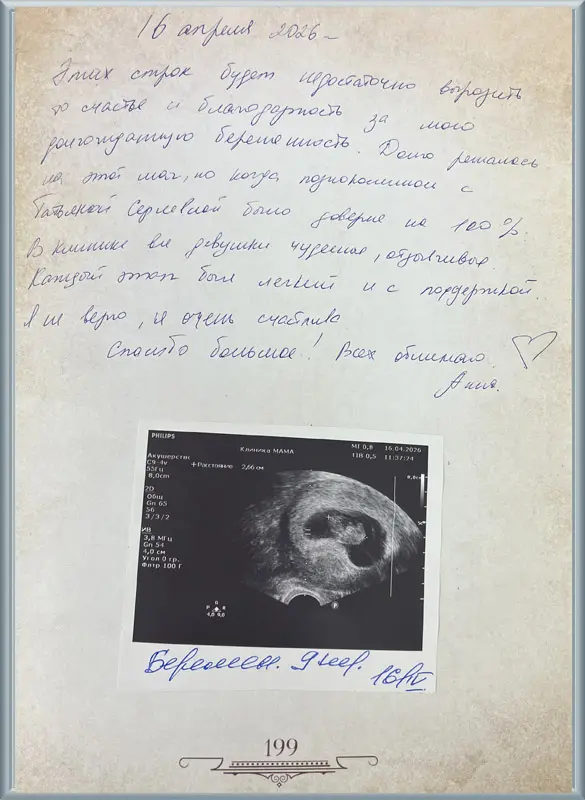 16 апреля 2026
Этих строк будет недостаточно выразить
то счастье и благодарность за мою
долгожданную беременность. Долго решалась
на этот шаг, но когда познакомилась с
Татьяной Сергеевной было доверие на 100%.
В клинике все девушки чудесные, отзывчивые
Каждый этап был легкий и с поддержкой.
Я не верю, я очень счастлива
Спасибо большое! Всех обнимаю ♡
Анна.
PHILIPS
Клиника МАМА
МІ 0,8 16.04.2026
TIB 0,5 11:37:24
Акушерств
C9-4v
55Гц
8,0cm
+ Расстояние 2,66 см
2D
Общ
Gn 65
56
3/3/2
ИВ
3,8 МГц
Gn 54
4,0 см
Угол 0 гр.
Флтр 100 Г
Беременн. 9 нед. 16/IV
199